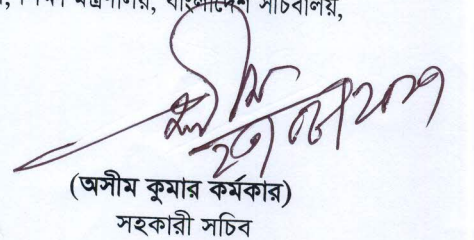 মন্ত্রণালয়, বাংলাদেশ সচিবালয়,
(অসীম কুমার কর্মকার)
সহকারী সচিব